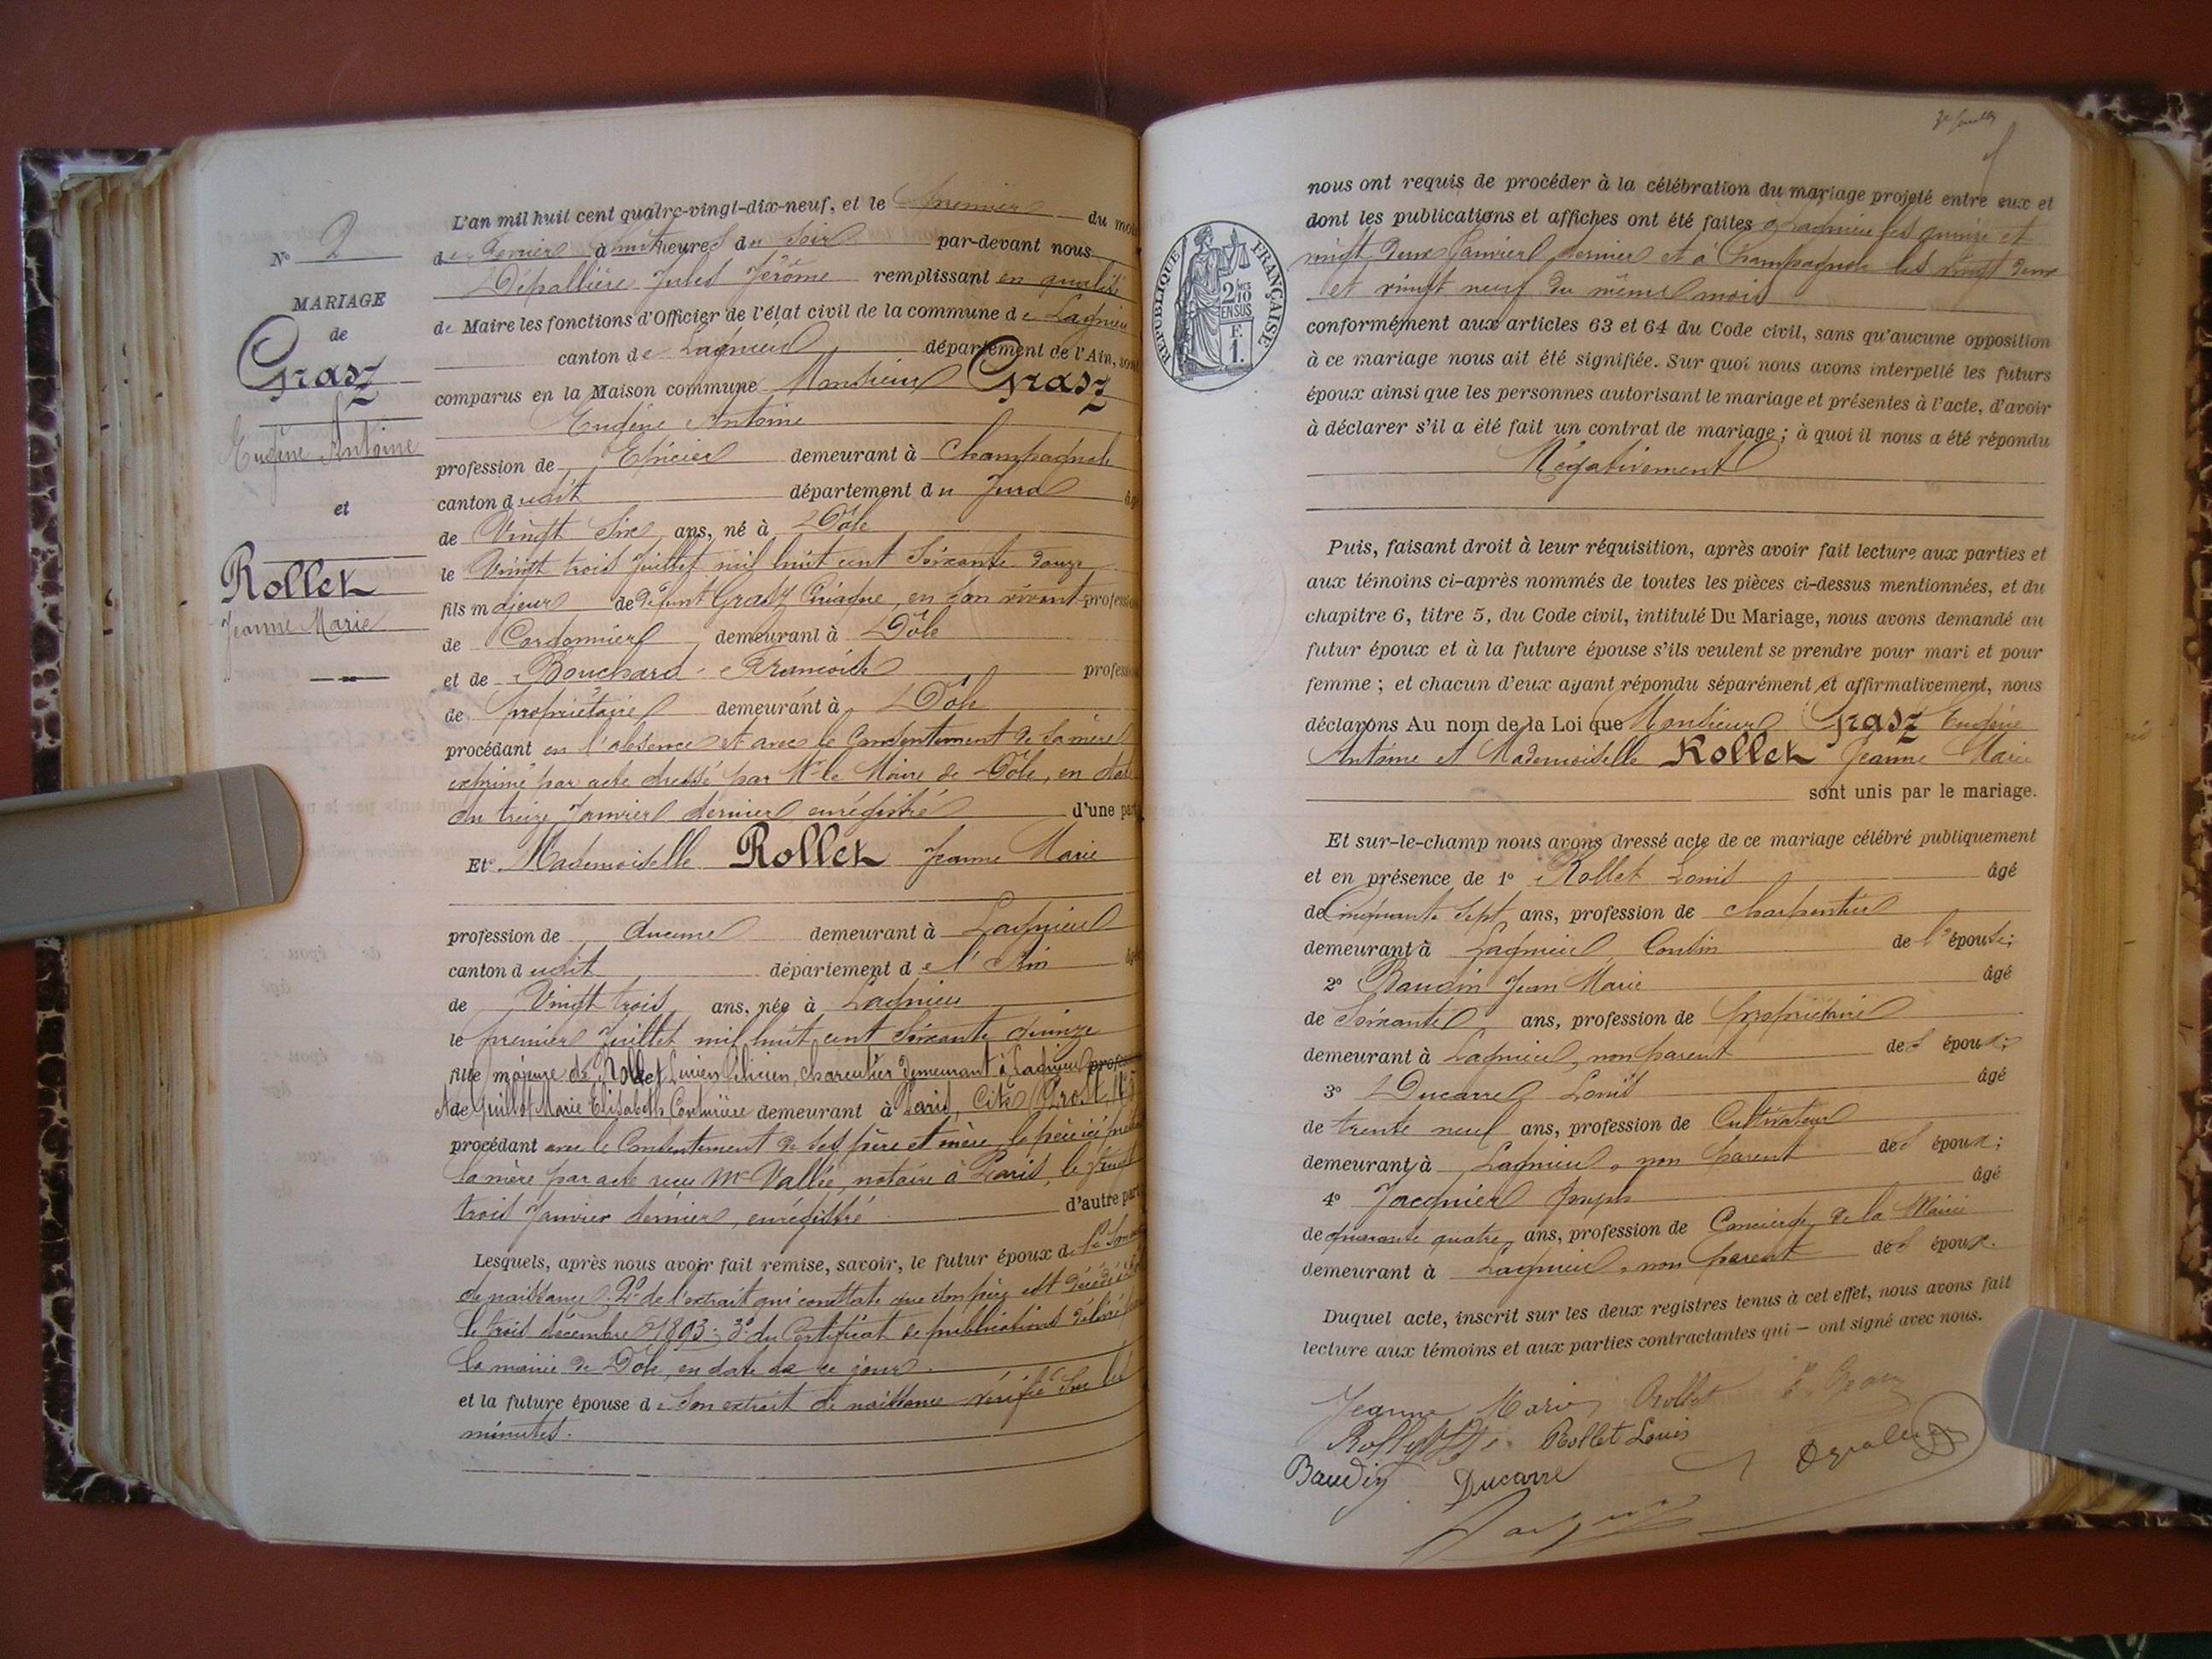 N° 2
MARIAGE
de
Grasz
Eugène Antoine
et
Rollet
Jeanne Marie
L'an mil huit cent quatre-vingt-dix-neuf, et le premier du mois
de février à huit heures du soir par-devant nous
Dépallière Jules Jérôme remplissant en qualité
de Maire les fonctions d'Officier de l'état civil de la commune de Lagnieu
canton de Lagnieu département de l'Ain, sont
comparus en la Maison commune Monsieur Grasz
Eugène Antoine
profession de Epicier demeurant à Champagnole
canton dudit département du Jura âgé
de Vingt six ans, né à Dôle
le Vingt trois Juillet mil huit cent soixante douze
fils majeur de défunt Grasz Ciriaque, en son vivant profession
de Cordonnier demeurant à Dôle
et de Bouchard Françoise profession
de propriétaire demeurant à Dôle
procédant en l'absence et avec le Consentement de sa mère
exprimé par acte dressé par Mr le Maire de Dôle, en date
du treize Janvier dernier enrégistré d'une part
Et Mademoiselle Rollet Jeanne Marie
profession de aucune demeurant à Lagnieu
canton dudit département de l'Ain âgée
de Vingt trois ans, née à Lagnieu
le premier Juillet mil huit cent soixante quinze
fille majeure de Rollet Lucien Félicien, charcutier demeurant à Lagnieu profession
et de Guillot Marie Elisabeth Couturière demeurant à Paris, Cité Prost,
procédant avec le Consentement de ses père et mère, le père ici présent
la mère par acte reçu Me Vallée, notaire à Paris, le vingt
trois Janvier dernier, enrégistré d'autre part
Lesquels, après nous avoir fait remise, savoir, le futur époux de
de naissance 2° de l'extrait qui constate que son père est décédé
le trois décembre 1893; 3° du Certificat de publications délivré
la mairie de Dôle, en date de ce jour.
et la future épouse de son extrait de naissance vérifié sur les
minutes.
nous ont requis de procéder à la célébration du mariage projeté entre eux et
dont les publications et affiches ont été faites à Lagnieu les quinze et
vingt deux Janvier dernier et à Champagnole les vingt deux
et vingt neuf du même mois
conformément aux articles 63 et 64 du Code civil, sans qu'aucune opposition
à ce mariage nous ait été signifiée. Sur quoi nous avons interpellé les futurs
époux ainsi que les personnes autorisant le mariage et présentes à l'acte, d'avoir
à déclarer s'il a été fait un contrat de mariage; à quoi il nous a été répondu
Négativement
RÉPUBLIQUE FRANÇAISE
2/10
EN SUS
F.
1.
Puis, faisant droit à leur réquisition, après avoir fait lecture aux parties et
aux témoins ci-après nommés de toutes les pièces ci-dessus mentionnées, et du
chapitre 6, titre 5, du Code civil, intitulé Du Mariage, nous avons demandé au
futur époux et à la future épouse s'ils veulent se prendre pour mari et pour
femme; et chacun d'eux ayant répondu séparément et affirmativement, nous
déclarons Au nom de la Loi que Monsieur Grasz Eugène
Antoine et Mademoiselle Rollet Jeanne Marie
sont unis par le mariage.
Et sur-le-champ nous avons dressé acte de ce mariage célébré publiquement
et en présence de 1° Rollet Louis âgé
de Cinquante sept ans, profession de charpentier
demeurant à Lagnieu Cousin de l'épouse;
2° Baudin Jean Marie âgé
de soixante ans, profession de propriétaire
demeurant à Lagnieu, non parent des époux;
3° Ducarre Louis âgé
de trente neuf ans, profession de Cultivateur
demeurant à Lagnieu, non parent des époux;
4° Jacquier Joseph âgé
de quarante quatre ans, profession de Concierge de la Mairie
demeurant à Lagnieu, non parent des époux.
Duquel acte, inscrit sur les deux registres tenus à cet effet, nous avons fait
lecture aux témoins et aux parties contractantes qui — ont signé avec nous.
Jeanne Marie Rollet
Rollet Rollet Louis
Baudin Ducarre